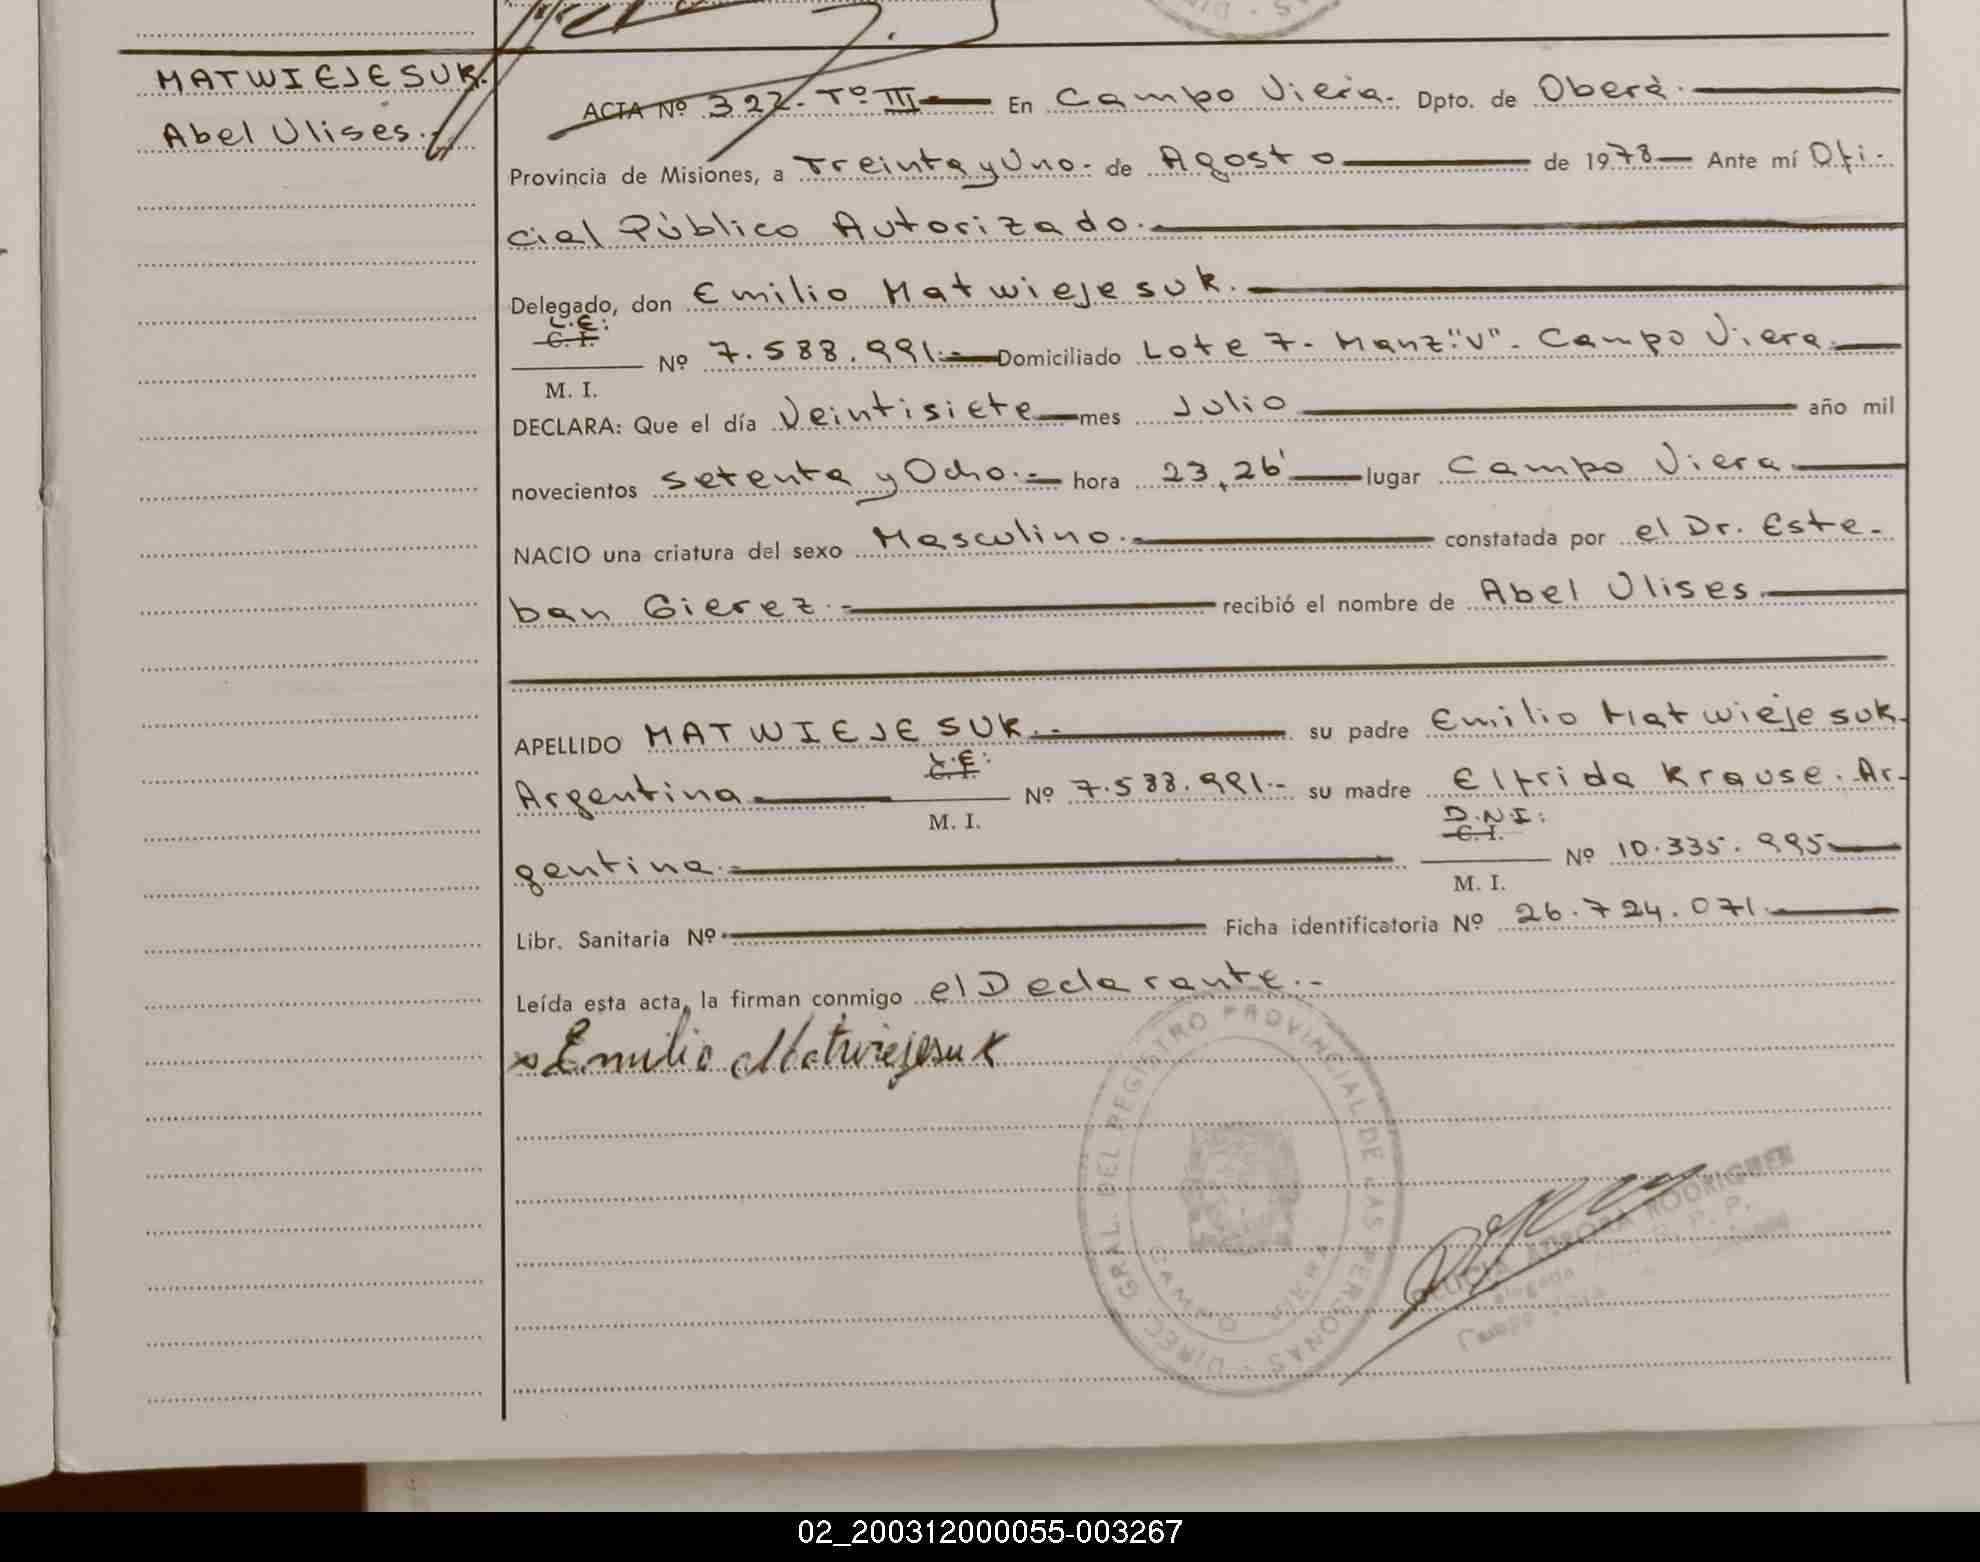 MATWIEJESUK.
Abel Ulises.-
ACTA Nº 322.- Tº III En Campo Viera.- Dpto. de Oberá.
Provincia de Misiones, a Treinta y Uno.- de Agosto de 1978 Ante mí Ofi-
cial Público Autorizado.
Delegado, don Emilio Matwiejesuk.
L.E:
C. I.
Nº 7.588.991.- Domiciliado Lote 7- Manz."V"- Campo Viera.
M. I.
DECLARA: Que el día Veintisiete mes Julio año mil
novecientos setenta y Ocho.- hora 23,26' lugar Campo Viera
NACIO una criatura del sexo Masculino.- constatada por el Dr. Este-
ban Gierez.- recibió el nombre de Abel Ulises.
APELLIDO MATWIEJESUK.- su padre Emilio Matwiejesuk.
Argentina L.E: C.I. Nº 7.588.991.- su madre Elfrida Krause. Ar-
M. I.
gentina.- D.N.I: C.I. Nº 10.335.995
M. I.
Libr. Sanitaria Nº Ficha identificatoria Nº 26.724.071.
Leída esta acta, la firman conmigo el Declarante.-
Emilio Matwiejesuk
DIREC. GRAL. DEL REGISTRO PROVINCIAL DE LAS PERSONAS
CAMPO VIERA
AURORA RODRIGUEZ
Delegada
Campo Viera
02_200312000055-003267